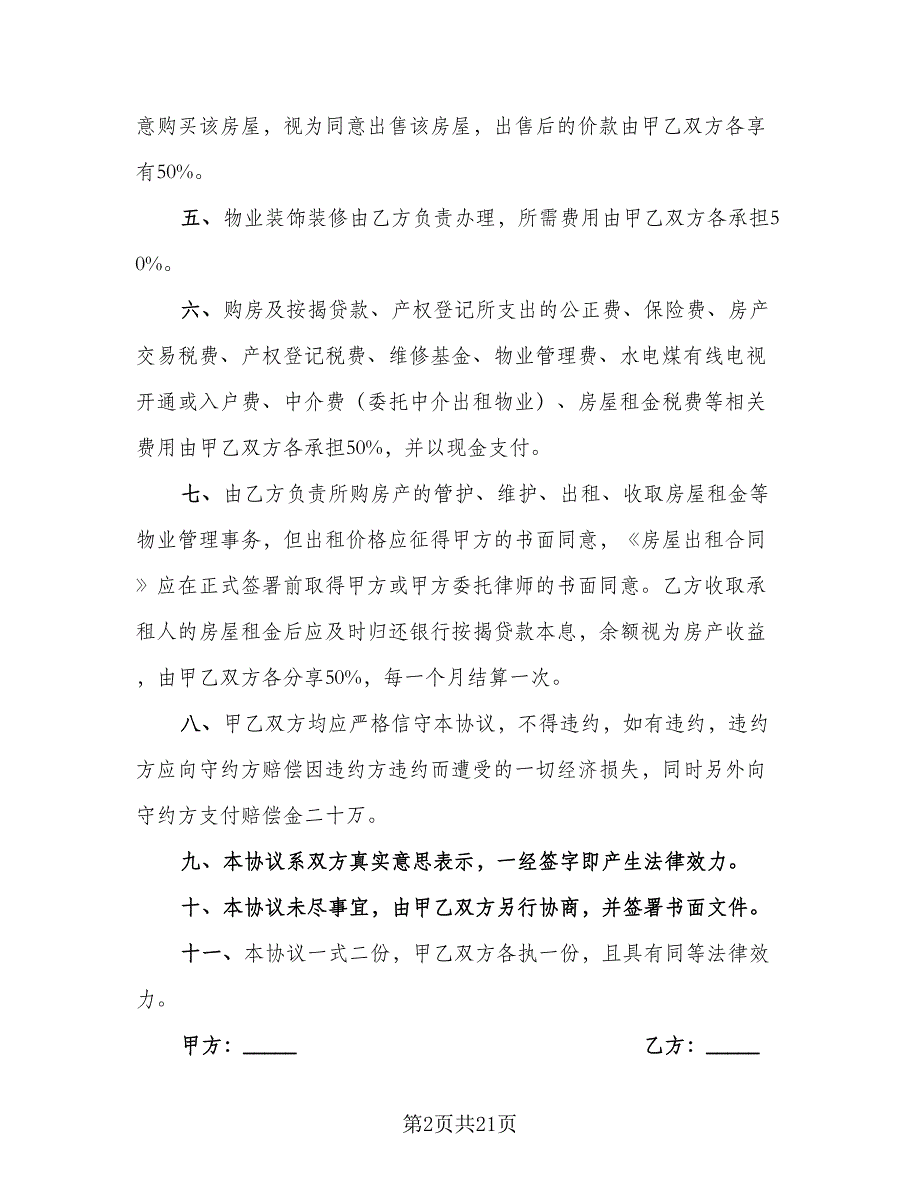 意购买该房屋，视为同意出售该房屋，出售后的价款由甲乙双方各享
有50%。
五、物业装饰装修由乙方负责办理，所需费用由甲乙双方各承担5
0%。
六、购房及按揭贷款、产权登记所支出的公正费、保险费、房产
交易税费、产权登记税费、维修基金、物业管理费、水电煤有线电视
开通或入户费、中介费（委托中介出租物业）、房屋租金税费等相关
费用由甲乙双方各承担50%，并以现金支付。
七、由乙方负责所购房产的管护、维护、出租、收取房屋租金等
物业管理事务，但出租价格应征得甲方的书面同意，《房屋出租合同
》应在正式签署前取得甲方或甲方委托律师的书面同意。乙方收取承
租人的房屋租金后应及时归还银行按揭贷款本息，余额视为房产收益
，由甲乙双方各分享50%，每一个月结算一次。
八、甲乙双方均应严格信守本协议，不得违约，如有违约，违约
方应向守约方赔偿因违约方违约而遭受的一切经济损失，同时另外向
守约方支付赔偿金二十万。
九、本协议系双方真实意思表示，一经签字即产生法律效力。
十、本协议未尽事宜，由甲乙双方另行协商，并签署书面文件。
十一、本协议一式二份，甲乙双方各执一份，且具有同等法律效
力。
甲方：_____ 乙方：_____
第2页共21页